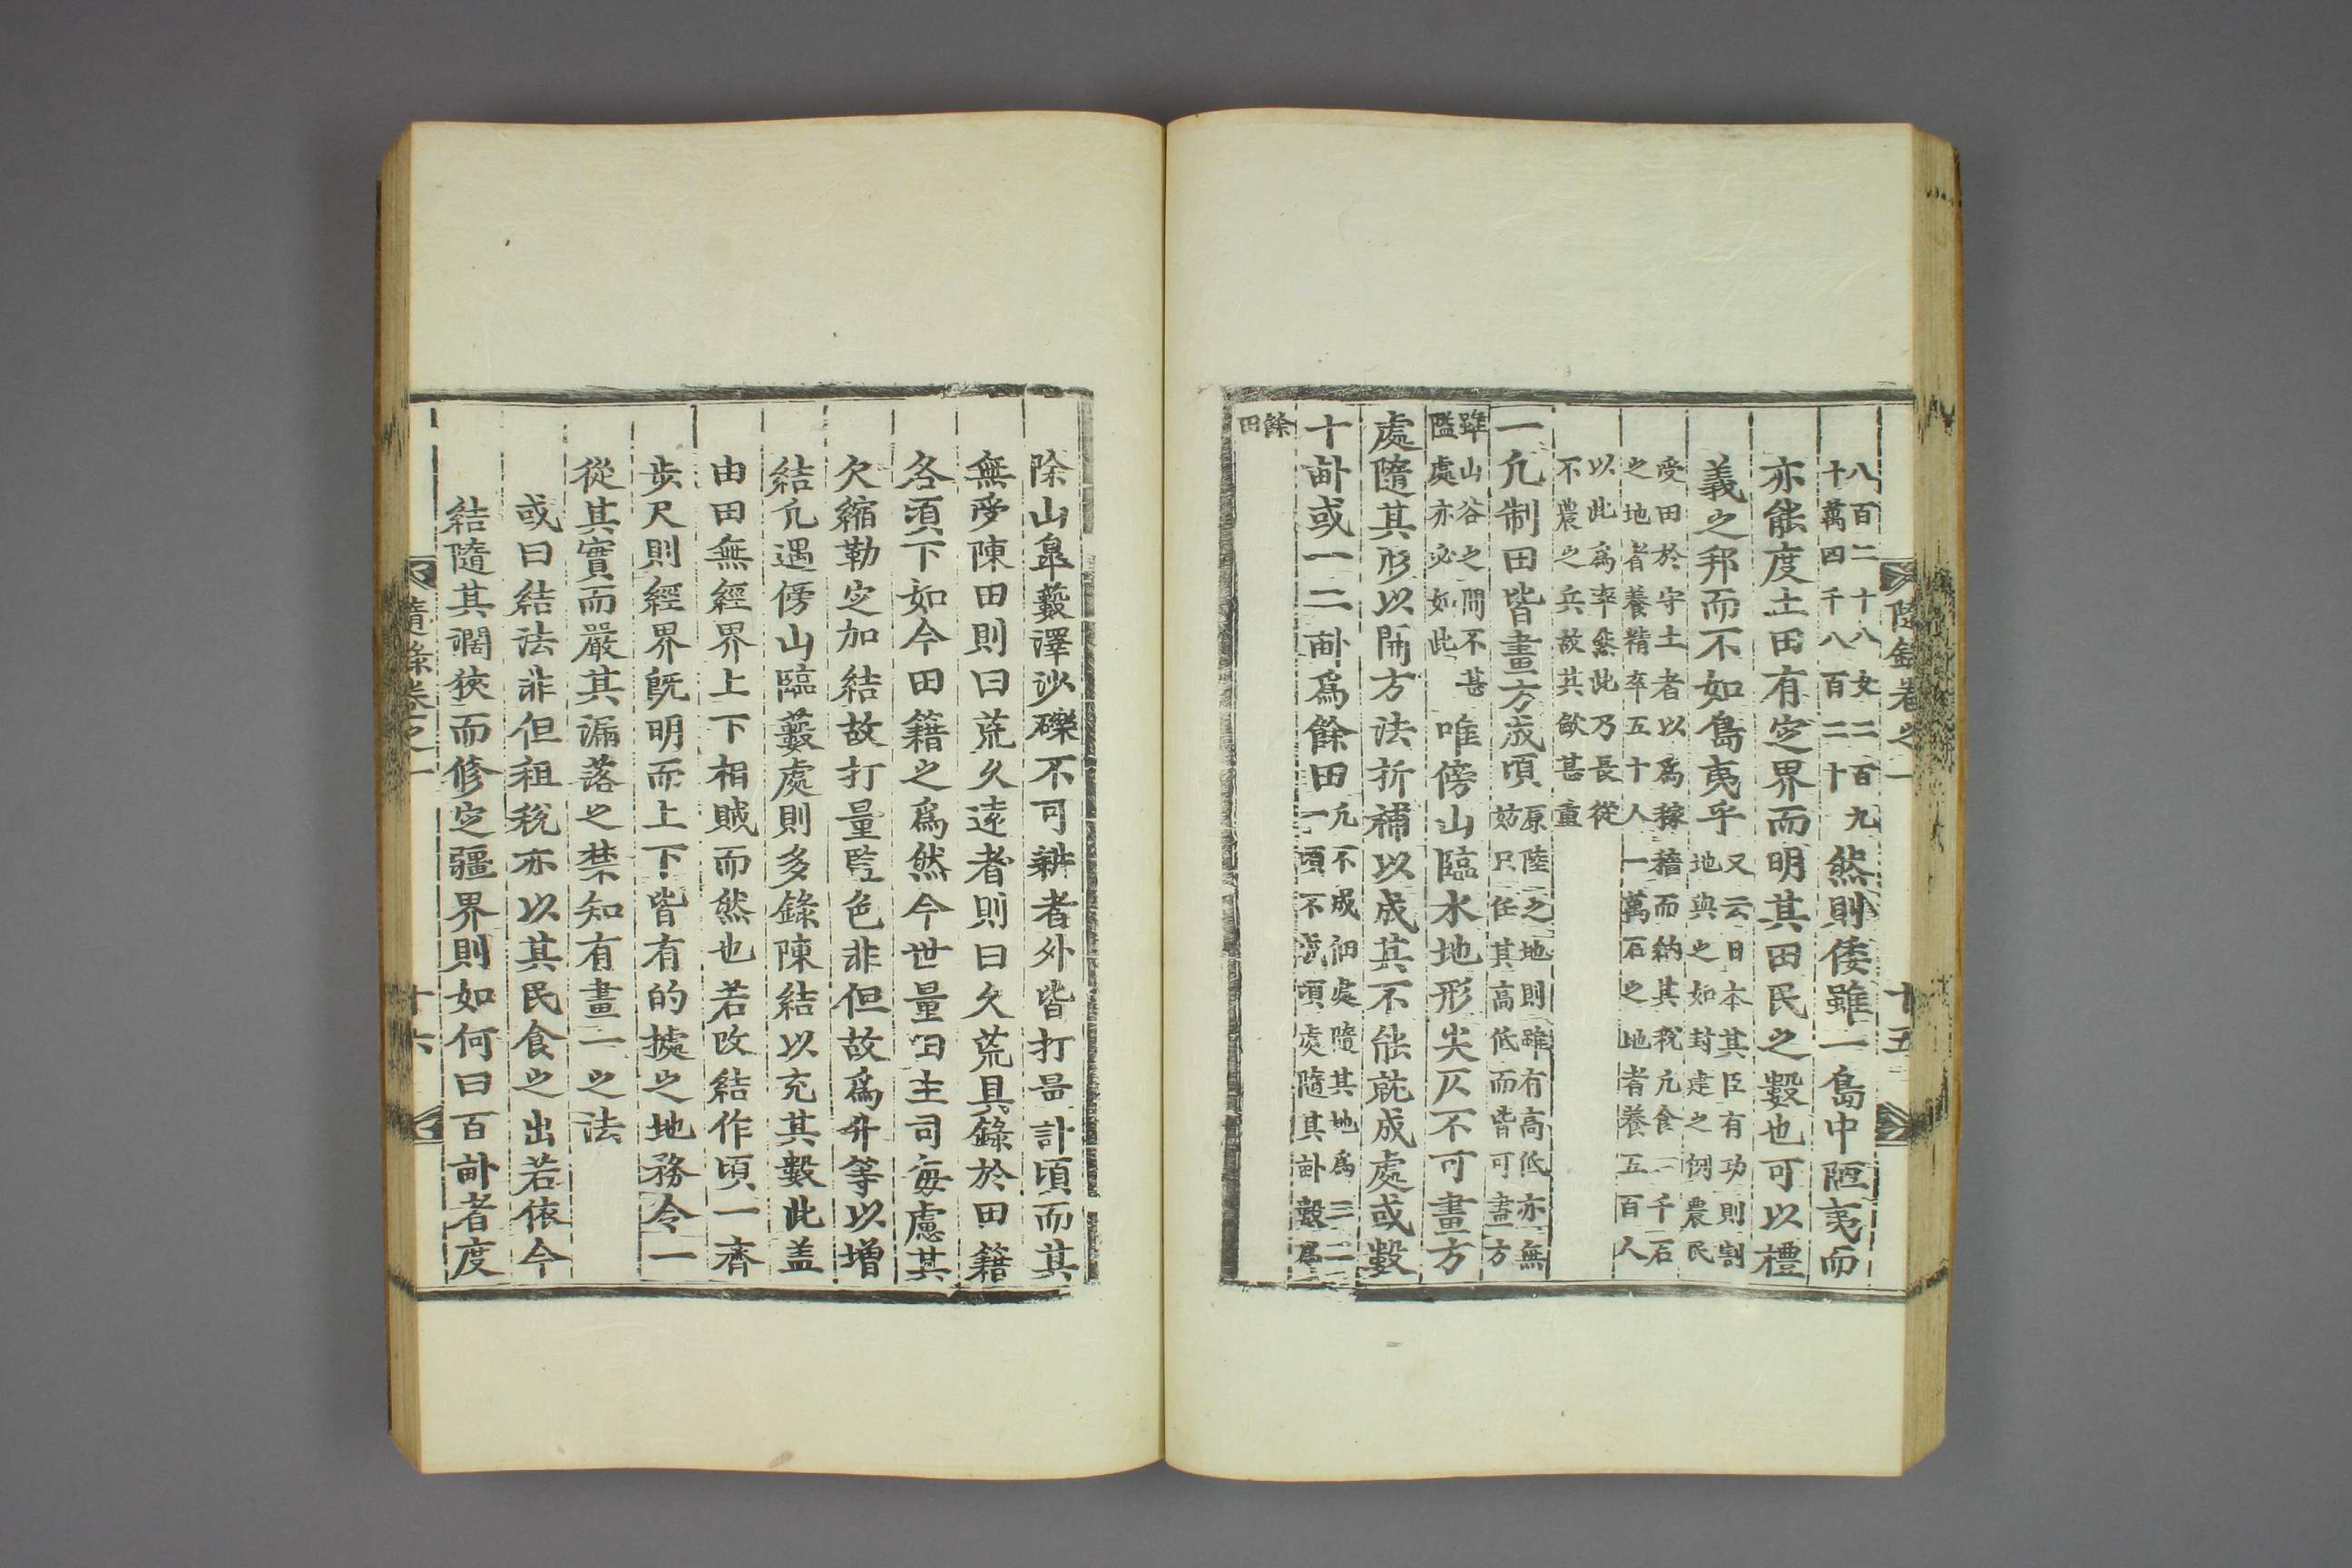 隨錄卷之一 十五
八百二十八女二百九
十萬四千八百二十
然則倭雖一島中陋夷而
亦能度土田有㝎界而明其田民之數也可以禮
義之邦而不如島夷乎
又云日本其臣有功則割
地與之如封建之例農民
受田於守土者以爲稼穡而納其稅凢食一千石
之地者養精卒五十人一萬石之地者養五百人
以此爲率然此乃長從
不農之兵故其歛甚重
一凢制田皆畫方成頃
原陸之地則雖有高低亦無
妨只任其高低而皆可畫方
雖山谷之間不甚
隘處亦必如此
唯傍山臨水地形尖仄不可畫方
處隨其形以開方法折補以成其不能就成處或數
十畝或一二畝爲餘田
凢不成佃處隨其地爲三二
一頃不成頃處隨其畝數爲
餘
田
除山皐藪澤沙礫不可耕者外皆打量計頃而其
無受陳田則曰荒久遠者則曰久荒具錄於田籍
各頃下如今田籍之爲然今世量田主司每慮其
欠縮勒㝎加結故打量監色非但故爲升等以增
結凢遇傍山臨藪處則多錄陳結以充其數此盖
由田無經界上下相賊而然也若改結作頃一齊
步尺則經界旣明而上下皆有的據之地務令一
從其實而嚴其漏落之禁知有畫一之法
或曰結法非但租稅亦以其民食之出若依今
結隨其濶狹而修㝎疆界則如何曰百畝者度
隨錄卷之一 十六